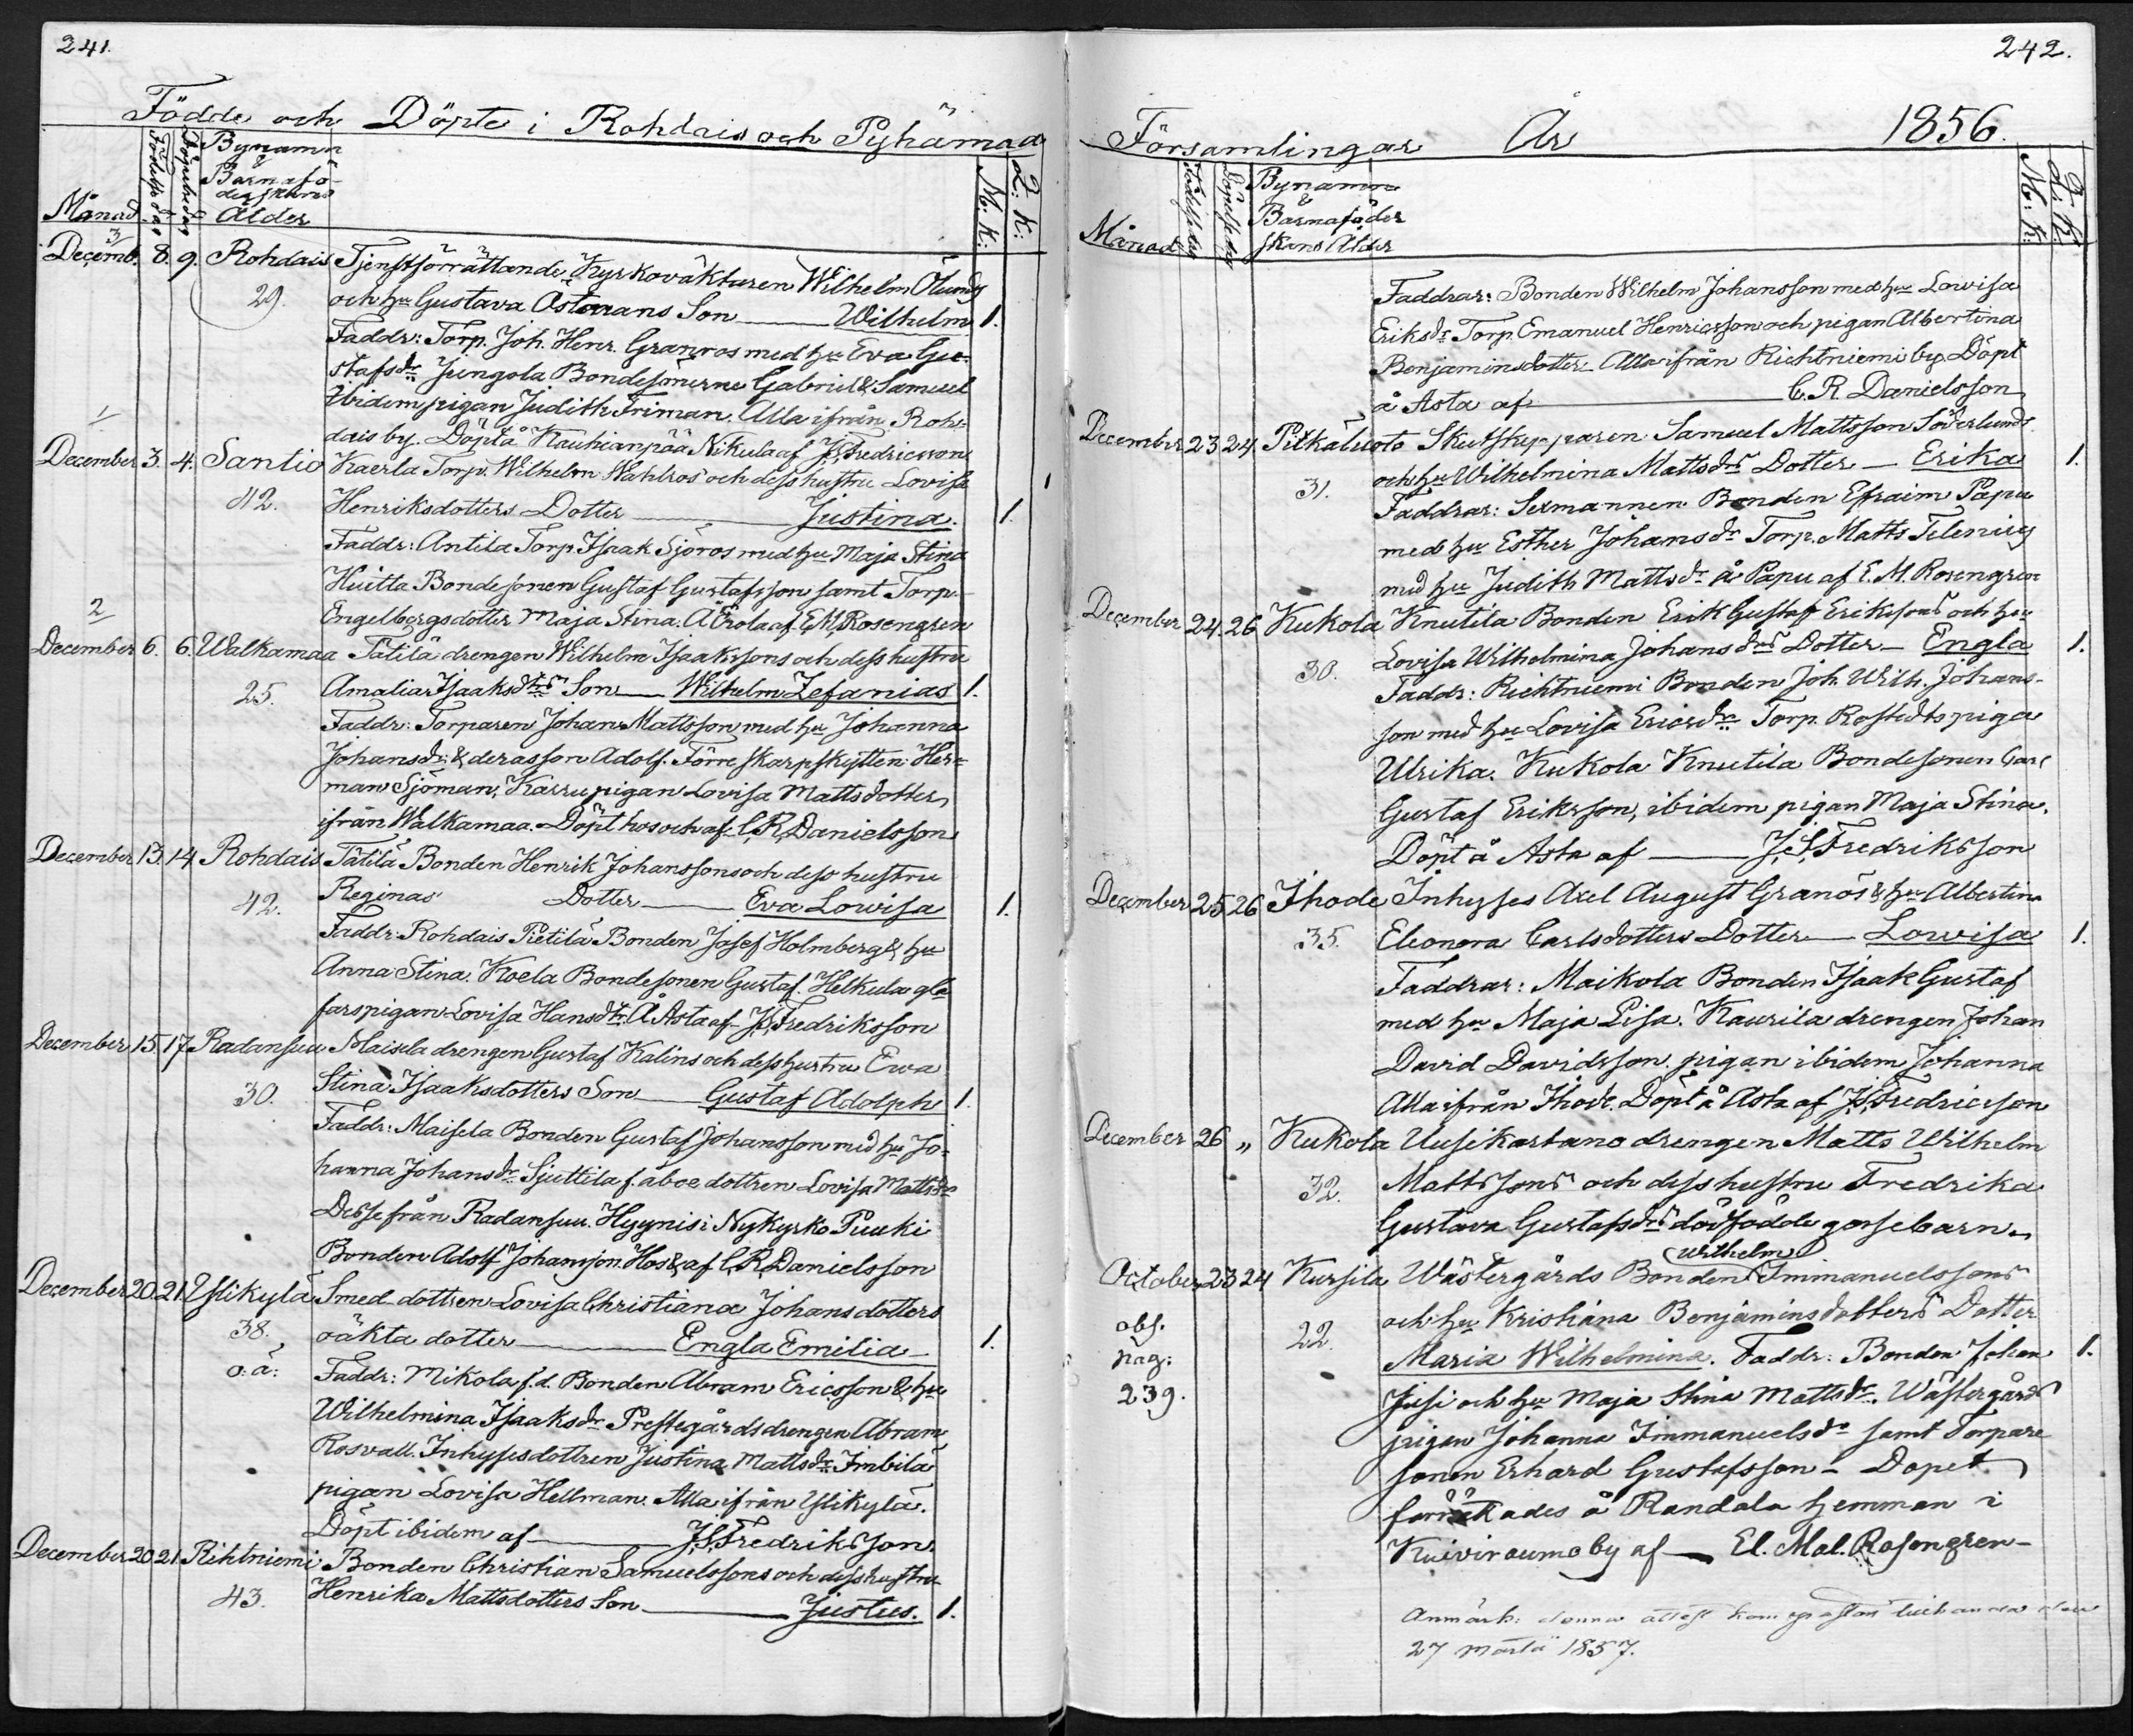 241.
Födde och Döpte i Rohdais och Pyhämaa
Månad
Födelsedag
Döpelsedag
Bynamn
&
Barnafö-
derskans
Ålder
M. K:
Q: K:
3
Decemb. 8. 9. Rohdais Tjenstförrättande Kyrkoväktaren Wilhelm Ölunds
29. och hu Gustava Östmans Son Wilhelm 1.
Faddr: Torp. Joh. Henr. Granros med hu Eva Gu-
stafsdr Jungola Bondesönerne Gabriel & Samuel
Ibidem pigan Judith Friman. Alla ifrån Roh-
dais by. Döpt å Kauhianpää Nikula af J.S. Fredricsson
1
December 3. 4. Santio Kaerla Torp. Wilhelm Wahlros och dess hustru Lovisa
42. Henriksdotters Dotter Justina. 1.
Faddr: Antila Torp. Isaak Sjöros med hu Maja Stina
Huitta Bondesonen Gustaf Gustafsson samt Torp.
Engelbergsdotter Maja Stina. Å Erola af E.M. Rosengren
2
December 6. 6. Walkamaa Tätilä drengen Wilhelm Isaakssons och dess hustru
25. Amalia Isaaksdtrs Son Wilhelm Zefanias 1.
Faddr: Torparen Johan Mattsson med hu Johanna
Johansdr & deras son Adolf. Förre skarpskytten Her-
man Sjöman, Karru pigan Lovisa Mattsdotter,
ifrån Walkamaa. Döpt hos och af C.R. Danielsson
December 13. 14 Rohdais Tätilä Bonden Henrik Johanssons och dess hustru
42. Reginas Dotter Eva Lowisa 1.
Faddr: Rohdais Pietilä Bonden Josef Holmberg & hu
Anna Stina. Koela Bondesonen Gustaf. Helkula gla
farspigan Lovisa Hansdtr. Å Asta af J.S. Fredriksson
December 15. 17. Radansuu Maisela drengen Gustaf Kalins och dess hustru Ewa
30. Stina Isaaksdotters Son Gustaf Adolph 1.
Faddr: Maisela Bonden Gustaf Johansson med hu Jo-
hanna Johansdr Sjuttila f. åboe dottren Lovisa Mattsdr
Desse från Radansuu. Hyynis i Nykyrko Puuki
Bonden Adolf Johansson. Hos & af C.R. Danielsson
December 20. 21. Ylikylä Smed dottren Lovisa Christiana Johansdotters
38. oäkta dotter Engla Emilia 1.
o: ä: Faddr: Mikola f.d. Bonden Abram Ericsson & hu
Wilhelmina Isaaksdr Prestegårdsdrengen Abram
Rosvall. Inhysesdottren Justina Mattsdr Imbilä
pigan Lovisa Hellman. Alla ifrån Ylikylä.
Döpt ibidem af J.S. Fredriksson.
December 20. 21. Rihtniemi Bonden Christian Samuelssons och dess hustru
43. Henrika Mattsdotters Son Justus. 1.
242.
Församlingar År 1856.
Månad
Födelsedag
Döpelsedag
Bynamn
&
Barnaföder
skans Ålder
M: K:
Q: K:
Faddrar: Bonden Wilhelm Johansson med hu Lowisa
Eriksdr Torp. Emanuel Henricsson och pigan Albertina
Benjaminsdotter. Alla ifrån Richtniemi by. Döpt
å Asta af C.R. Danielsson
December 23 24. Pitkäluoto Skutskepparen Samuel Mattsson Söderlunds
31. och hu Wilhelmina Mattsdrs Dotter Erika 1.
Faddrar: Sexmannen Bonden Efraim Papu
med hu Esther Johansdr Torp. Matts Telenius
med hu Judith Mattsdr å Papu af E. M. Rosengren
December 24. 26 Kukola Knutila Bonden Erik Gustaf Erikssons och hu
30. Lovisa Wilhelmina Johansdrs Dotter Engla 1.
Faddr: Richtniemi Bonden Joh. Wilh. Johans-
son med hu Lovisa Ericsdr Torp. Rostedts piga
Ulrika. Kukola Knutila Bondesonen Carl
Gustaf Eriksson, ibidem pigan Maja Stina.
Döpt å Asta af J.S. Fredriksson
December 25 26 Ihode Inhyses Axel August Granös & hu Albertina
35. Eleonora Carlsdotters Dotter Lowisa 1.
Faddrar: Maikola Bonden Isaak Gustaf
med hu Maja Lisa. Kaurila drengen Johan
David Davidsson pigan ibidem Johanna
Alla ifrån Ihode. Döpt å Asta af J.S. Fredricsson
December 26 „ Kukola Uusikartano drengen Matts Wilhelm
32. Mattssons och dess hustru Fredrika
Gustava Gustafsdrs dödfödde gossebarn.
Wilhelm
October 23 24 Kursila Wästergårds Bonden Immanuelssons
obs. 22. och hu Kristiana Benjaminsdotters Dotter
pag: Maria Wilhelmina. Faddr: Bonden Johan 1.
239. Jusi och hu Maja Stina Mattsdr. Wästergårds
pigan Johanna Immanuelsdr samt Torpare
sonen Erhard Gustafsson – Dopet
förrättades å Randala hemman i
Kuivirauma by af El. Mal. Rosengren
Anmärk: denna attest kom
27 Martii 1857.